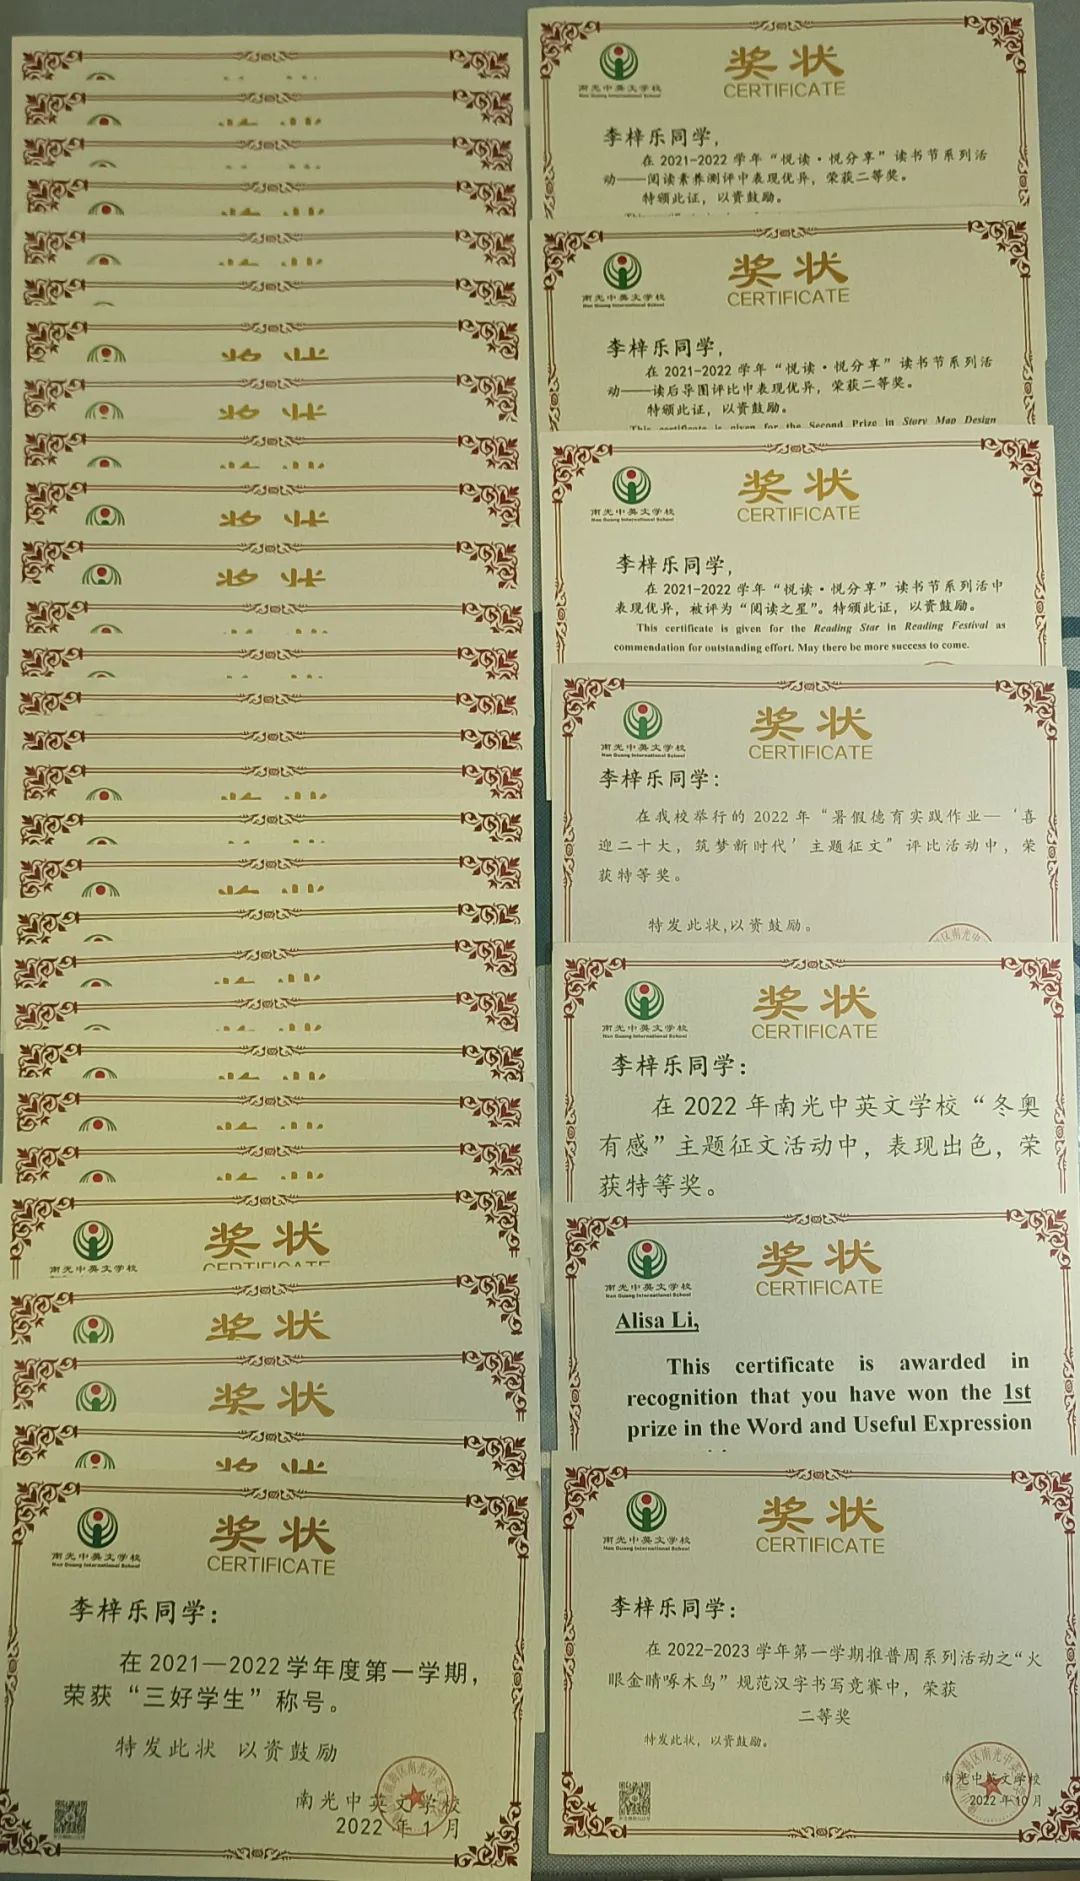 奖状
南光中英文学校
奖状
奖状
奖状
奖状
南光中英文学校
Nan Guang International School
奖状
CERTIFICATE
李梓乐同学：
在2021—2022学年度第一学期，
荣获“三好学生”称号。
特发此状 以资鼓励
南光中英文学校
2022年1月
南光中英文学校
Nan Guang International School
奖状
CERTIFICATE
李梓乐同学，
在2021-2022学年“悦读·悦分享”读书节系列活
动——阅读素养测评中表现优异，荣获二等奖。
特颁此证，以资鼓励。
南光中英文学校
Nan Guang International School
奖状
CERTIFICATE
李梓乐同学，
在2021-2022学年“悦读·悦分享”读书节系列活
动——读后导图评比中表现优异，荣获二等奖。
特颁此证，以资鼓励。
This certificate is given for the Second Prize in Story Map Design
南光中英文学校
Nan Guang International School
奖状
CERTIFICATE
李梓乐同学，
在2021-2022学年“悦读·悦分享”读书节系列活中
表现优异，被评为“阅读之星”。特颁此证，以资鼓励。
This certificate is given for the Reading Star in Reading Festival as
commendation for outstanding effort. May there be more success to come.
南光中英文学校
Nan Guang International School
奖状
CERTIFICATE
李梓乐同学：
在我校举行的2022年“暑假德育实践作业—‘喜
迎二十大，筑梦新时代’主题征文”评比活动中，荣
获特等奖。
特发此状,以资鼓励。
南光中英文学校
Nan Guang International School
奖状
CERTIFICATE
李梓乐同学：
在2022年南光中英文学校“冬奥
有感”主题征文活动中，表现出色，荣
获特等奖。
南光中英文学校
Nan Guang International School
奖状
CERTIFICATE
Alisa Li,
This certificate is awarded in
recognition that you have won the 1st
prize in the Word and Useful Expression
南光中英文学校
Nan Guang International School
奖状
CERTIFICATE
李梓乐同学：
在2022-2023学年第一学期推普周系列活动之“火
眼金睛啄木鸟”规范汉字书写竞赛中，荣获
二等奖
特发此状，以资鼓励。
南光中英文学校
2022年10月